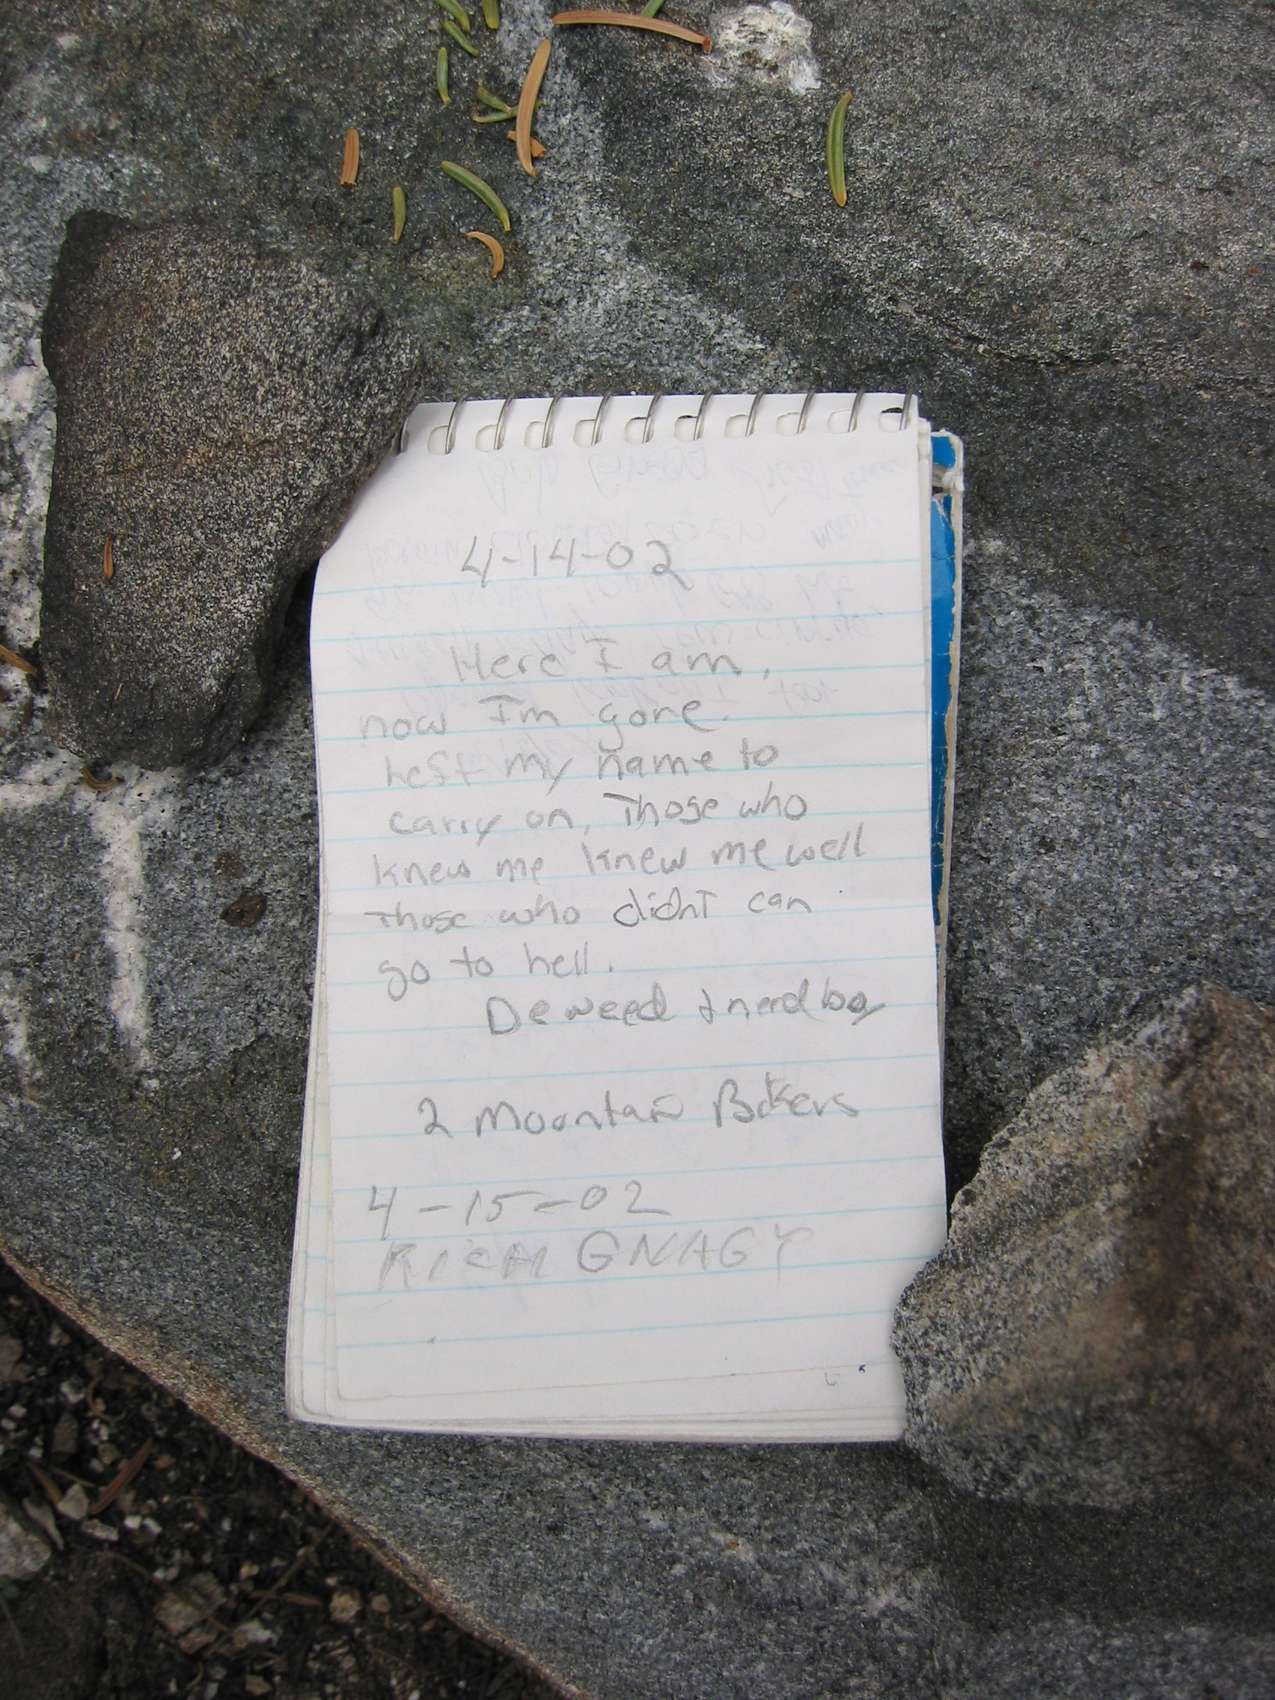 4-14-02
Here I am,
now Im gone.
left my name to
carry on, Those who
knew me knew me well
Those who didnt can
go to hell.
Deweed & nerdboy
2 Mountain Bikers
4-15-02
RICH GNAGY